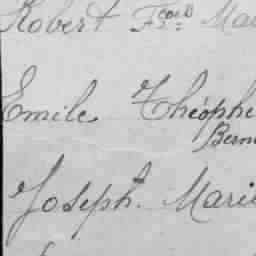 Robert Fcois Mar
Emile Théophi
Bern
Joseph Marie